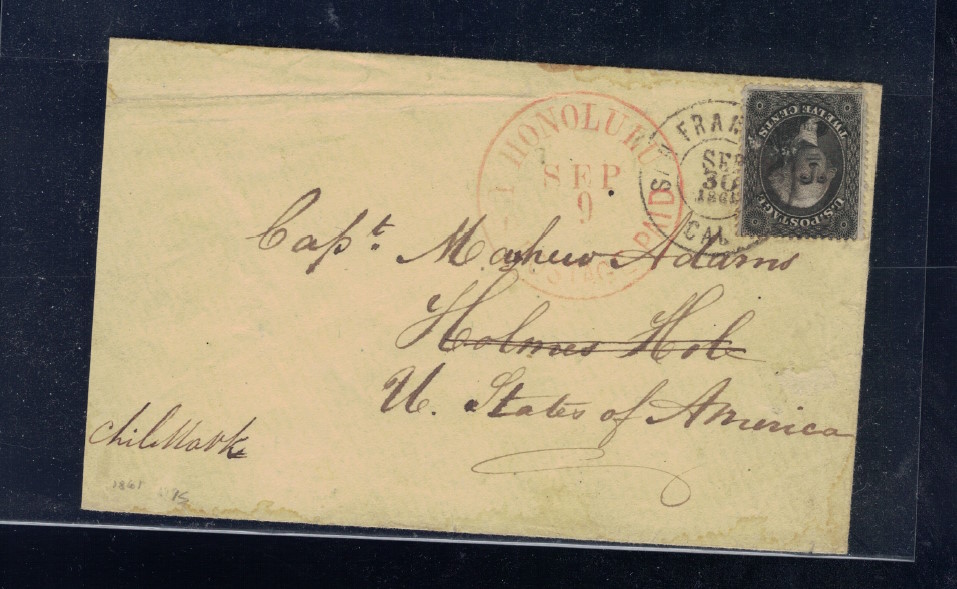 HONOLULU
SEP
9
POSTAGE PAID
SAN FRAN
SEP
30
1861
CAL
U.S. POSTAGE
TWELVE CENTS
Capt. Mahew Adams
Holmes Hole
U. States of America
Chilmark
1861